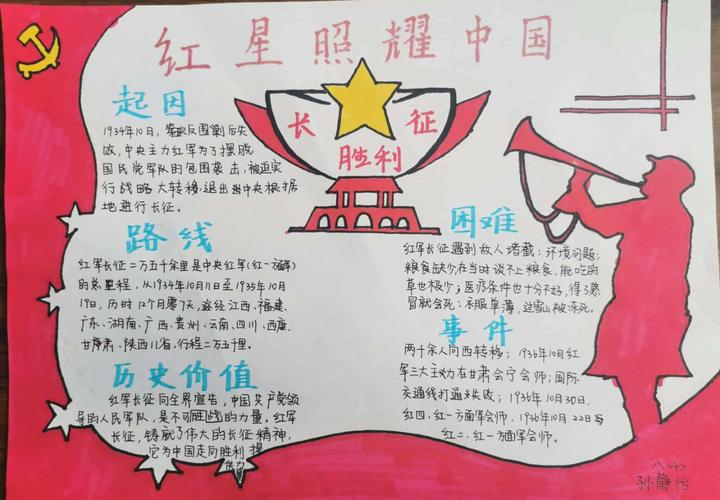 红星照耀中国
长征
胜利
起因
1934年10月,第五次反围剿后失
败,中央主力红军为了摆脱
国民党军队的包围袭击,被迫实
行战略大转移,退出中央根据
地进行长征。
路线
红军长征二万五千余里是中央红军(红一方面军)
的总里程,从1934年10月11日至1935年10月
19日,历时12个月零7天,途经江西、福建、
广东、湖南、广西、贵州、云南、四川、西康、
甘肃、陕西11省,行程二万五千里。
历史价值
红军长征向全界宣告,中国共产党领
导的人民军队,是不可战胜的力量。红军
长征,铸就了伟大的长征精神,
它为中国走向胜利提
供力量
困难
红军长征遇到敌人堵截;环境问题;
粮食缺少在当时谈不上粮食,能吃的
草也极少;医疗条件也十分不好,得了感
冒就会死;衣服单薄,过雪山被冻死。
事件
两千余人向西转移;1936年10月红
军三大主力在甘肃会宁会师;国际
交通线打通失败;1936年10月30日,
红四、红一方面军会师,1936年10月22日与
红二、红一方面军会师。
孙静怡